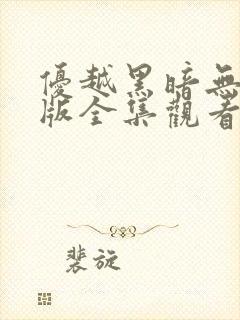 優越黑暗無
版全集觀看
裴旋